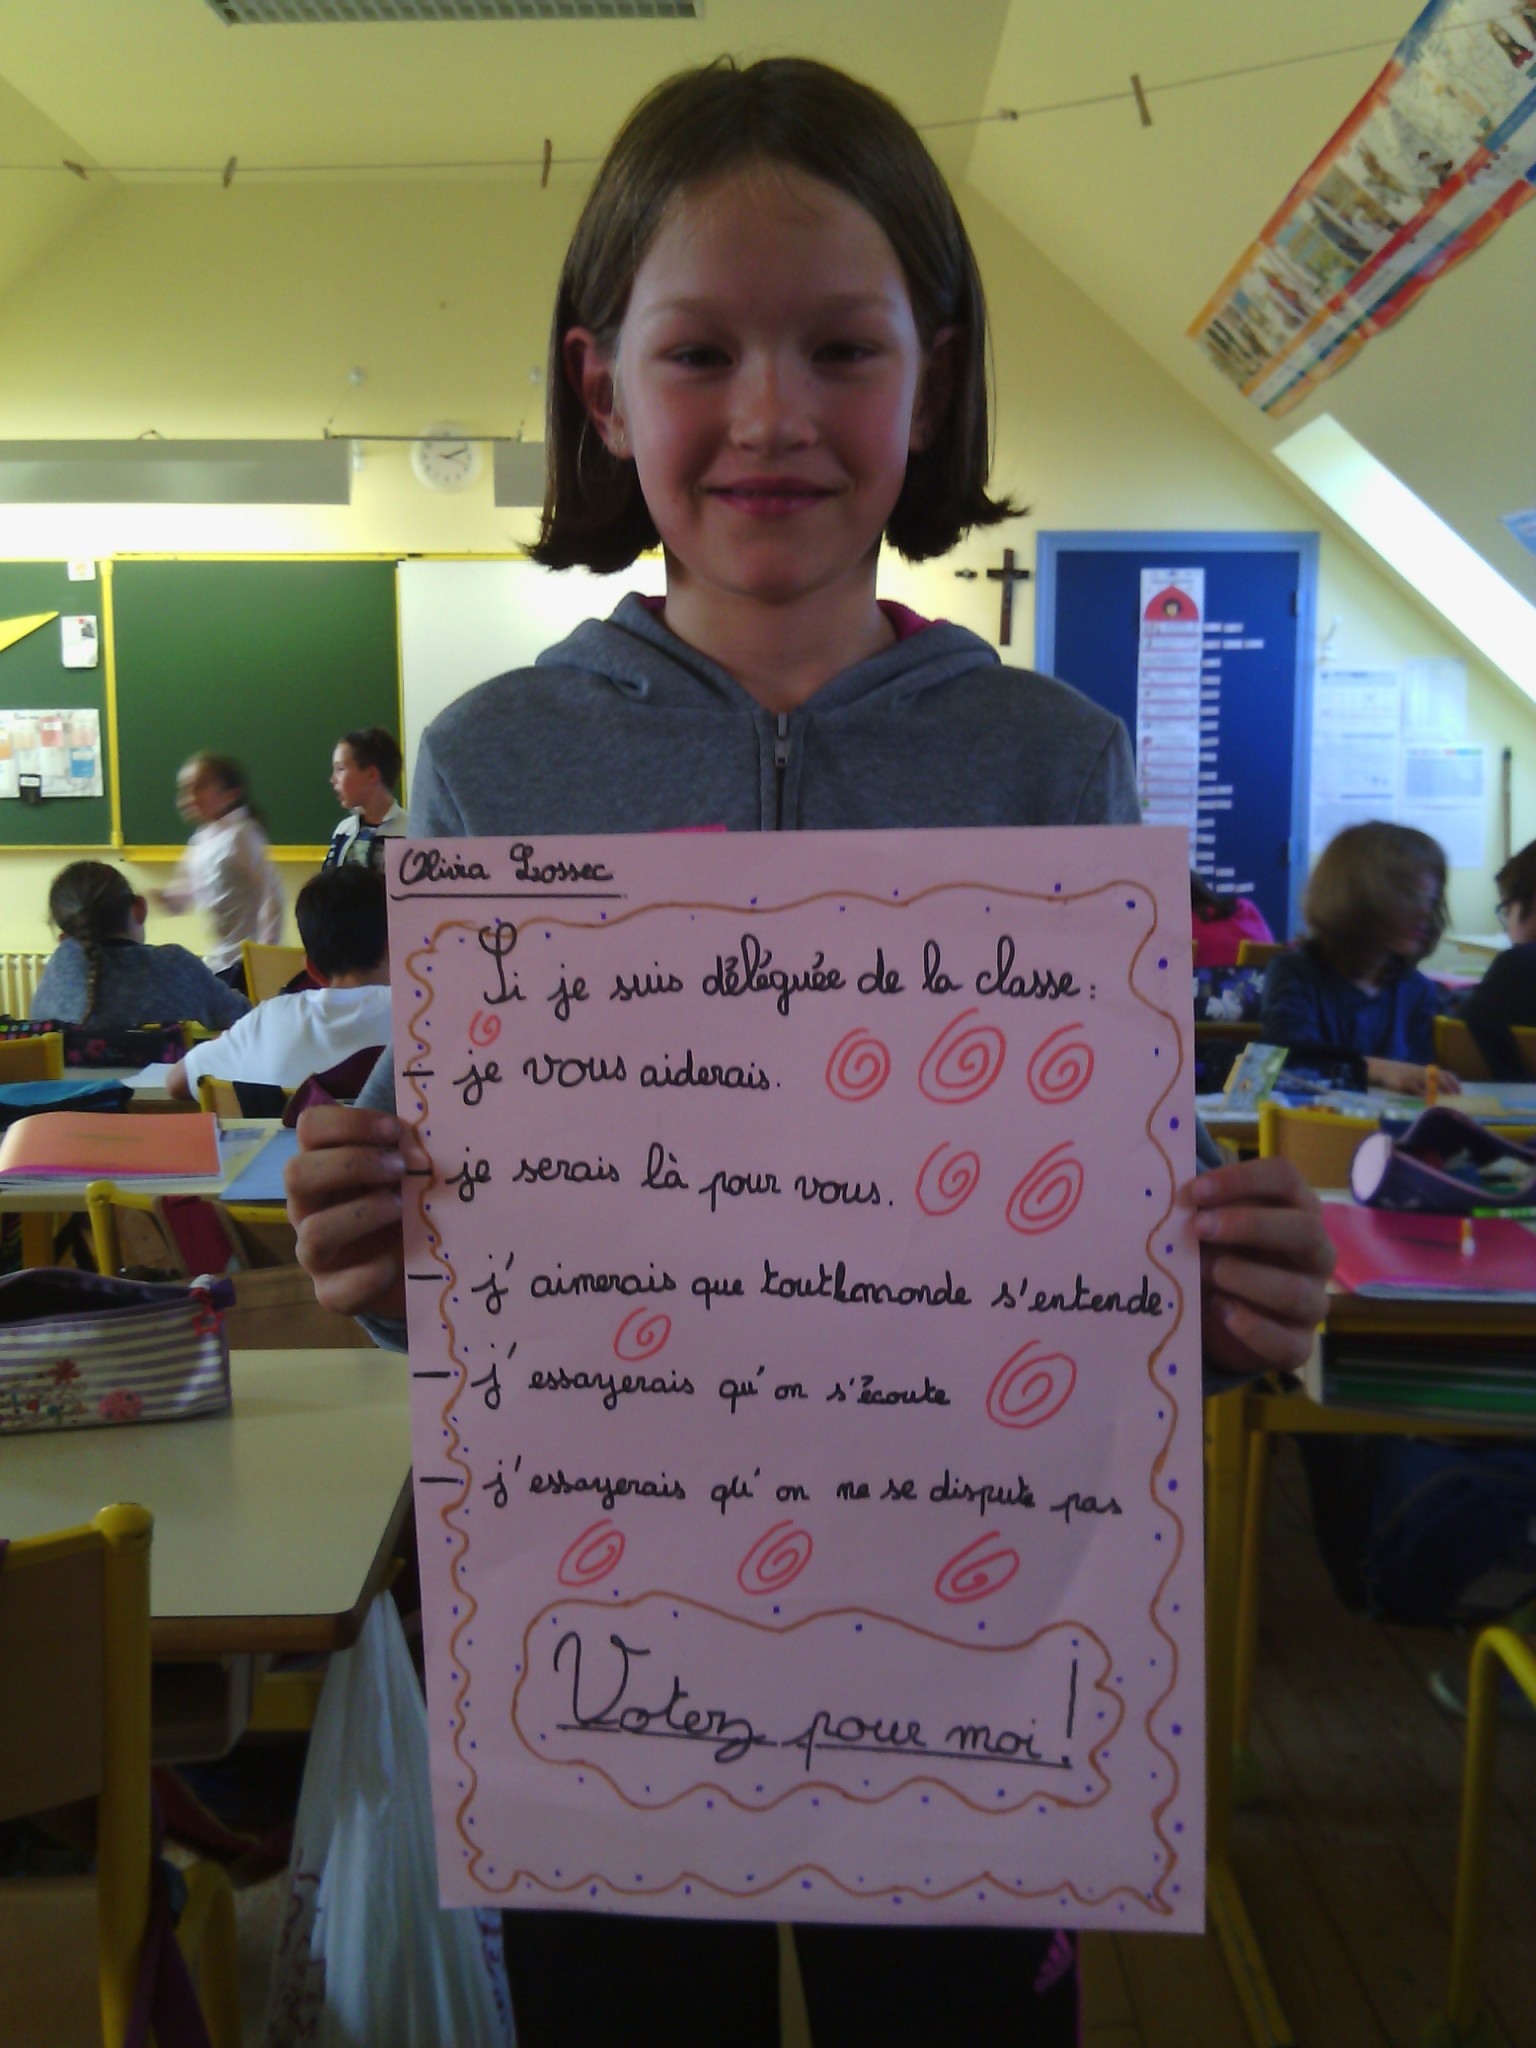 Olivia Lossec
Si je suis déléguée de la classe :
- je vous aiderais.
- je serais là pour vous.
- j' aimerais que toutlemonde s'entende.
- j' essayerais qu'on s'écoute
- j'essayerais qu'on ne se dispute pas
Votez pour moi !